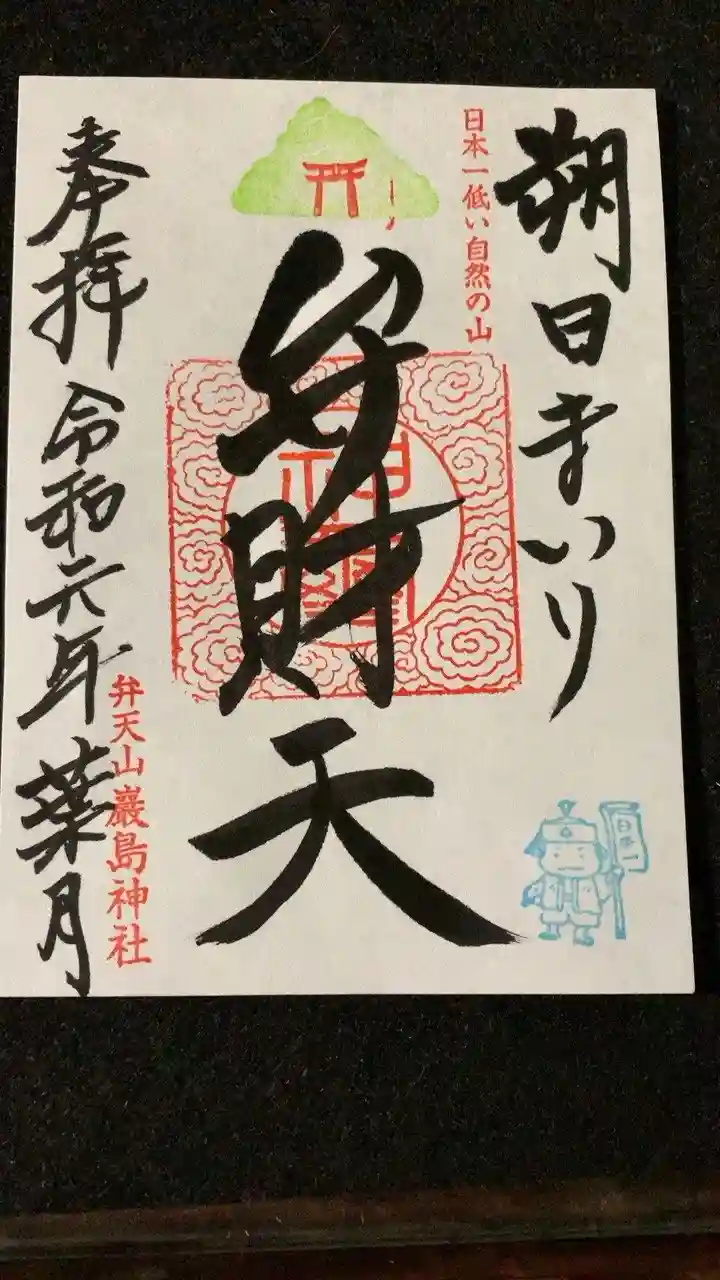 朔日まいり
日本一低い自然の山
弁財天
奉拝 令和元年葉月
弁天山 巖島神社
日本一